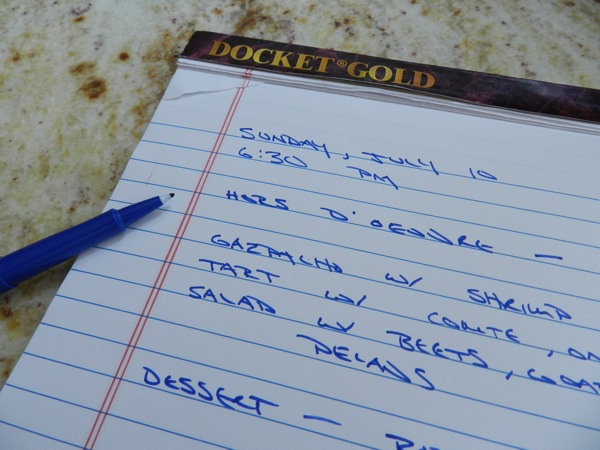 DOCKET® GOLD
SUNDAY, JULY 10
6:30 PM
HORS D'OEUVRE —
GAZPACHO W/ SHRIMP
TART W/ COMTE,
SALAD W/ BEETS,
PECANS
DESSERT —